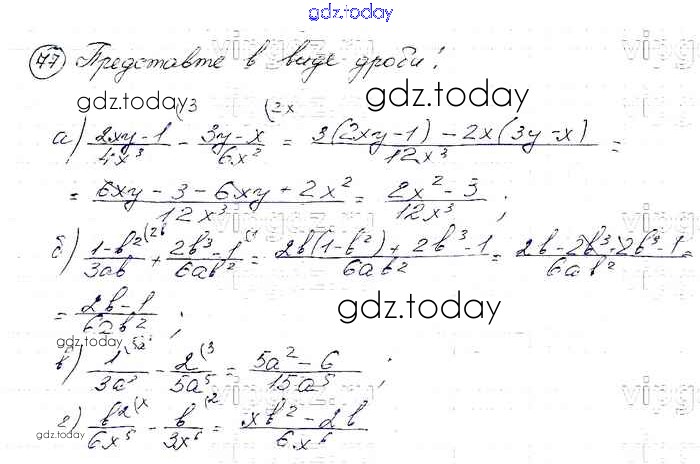 gdz.today
77 Представте в виде дроби:
gdz.today gdz.today
а) (2xy-1)/(4x³) (3 - (3y-x)/(6x²) (2x = (3(2xy-1)-2x(3y-x))/(12x³) =
= (6xy-3-6xy+2x²)/(12x³) = (2x²-3)/(12x³) ;
б) (1-b²)/(3ab) (2b + (2b³-1)/(6ab²) (1 = (2b(1-b²)+2b³-1)/(6ab²) = (2b-2b³+2b³-1)/(6ab²) =
= (2b-1)/(62b²) ;
gdz.today gdz.today
в) 1/(3a³) (5a² - 2/(5a⁵) (3 = (5a²-6)/(15a⁵) ;
г) b²/(6x⁵) (x - b/(3x⁶) (2 = (xb²-2b)/(6x⁶)
gdz.today